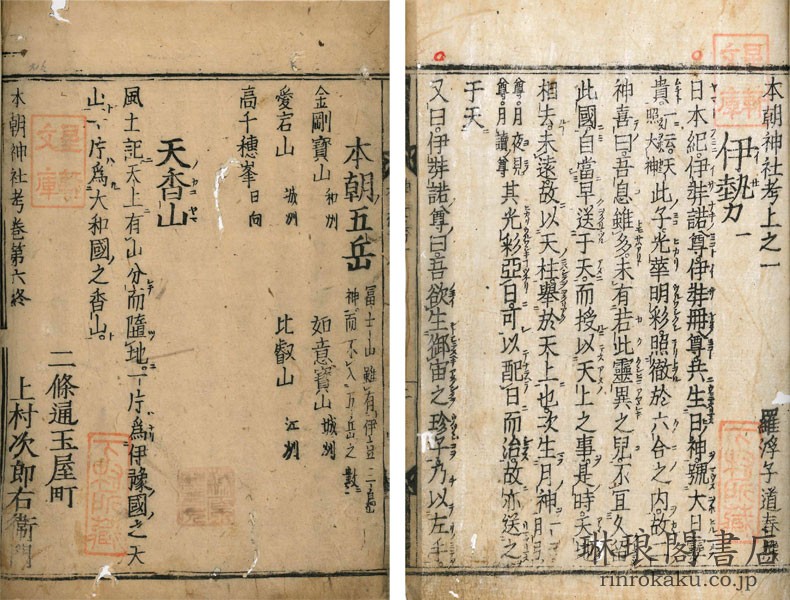 本朝神社考上之一 羅浮子道春
伊勢 一
日本紀伊弉諾尊伊弉冊尊共生日神號大日
貴一云天照大神此子光華明彩照徹於六合之内故
神喜曰吾息雖多未有若此靈異之兒不宜久留
此國自當早送于天而授以天上之事是時天地
相去未遠故以天柱舉於天上也次生月神一
尊月夜見尊月讀尊其光彩亞日可以配日而治故亦送之
于天
又曰伊弉諾尊曰吾欲生御宙之珍子乃以左手
本朝五岳 冨士山雖有伊豆神而不入五岳之數
金剛寶山 和州 如意寶山 城州
愛宕山 城州 比叡山 江州
高千穗峯 日向
天香山
風土記天上有山分而隨地一片爲伊豫國之天
山一片爲大和國之香山
二條通玉屋町
上村次郎右衞門
本朝神社考卷第六終
琳琅閣書店
rinrokaku.co.jp